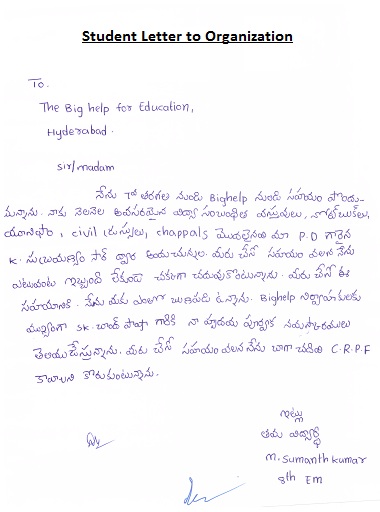 Student Letter to Organization
To.
The Big help for Education,
Hyderabad.
sir/madam
నేను 7వ తరగతి నుండి Bighelp నుండి సహాయం పొందు-
తున్నాను. నాకు నెలనెల అవసరమైన విద్యా సంబంధిత వస్తువులు, నోట్‌బుక్‌లు,
యూనిఫాం, civil డ్రస్సులు, chappals మొదలైనవి మా P.D గారైన
K. సుబ్రమణ్యం సార్ ద్వారా అందుచున్నవి. మీరు చేసే సహాయం వలన నేను
ఎటువంటి ఇబ్బంది లేకుండా చక్కగా చదువుకొంటున్నాను. మీరు చేసే ఈ
సహాయానికి నేను మీకు ఎంతో ఋణపడి ఉన్నాను. Bighelp నిర్వాహకులకు
ముఖ్యంగా SK. చాంద్ పాషా గారికి నా హృదయ పూర్వక నమస్కారములు
తెలియజేస్తున్నాను. మీరు చేసే సహాయం వలన నేను బాగా చదివి C.R.P.F
కావాలని కోరుకుంటున్నాను.
ఇట్లు
తమ విద్యార్థి
M. Sumanth kumar
8th Em